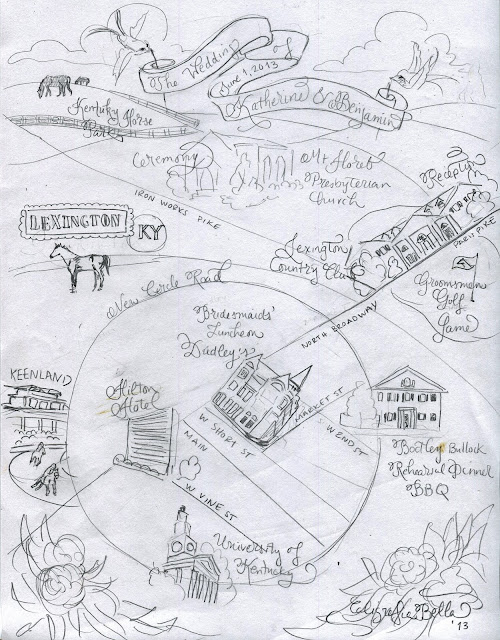 The Wedding of
June 1, 2013
Katherine & Benjamin
Kentucky Horse
Park
Ceremony
Mt Horeb
Presbyterian
Church
Reception
IRON WORKS PIKE
LEXINGTON
KY
Lexington
Country Club
PARIS PIKE
Groomsmen
Golf
Game
New Circle Road
Bridesmaids'
Luncheon
Dudley's
NORTH BROADWAY
KEENLAND
Hilton
Hotel
W SHORT ST
MARKET ST
MAIN
W. VINE ST
Bodley Bullock
Rehearsal Dinner
BBQ
University of
Kentucky
'13